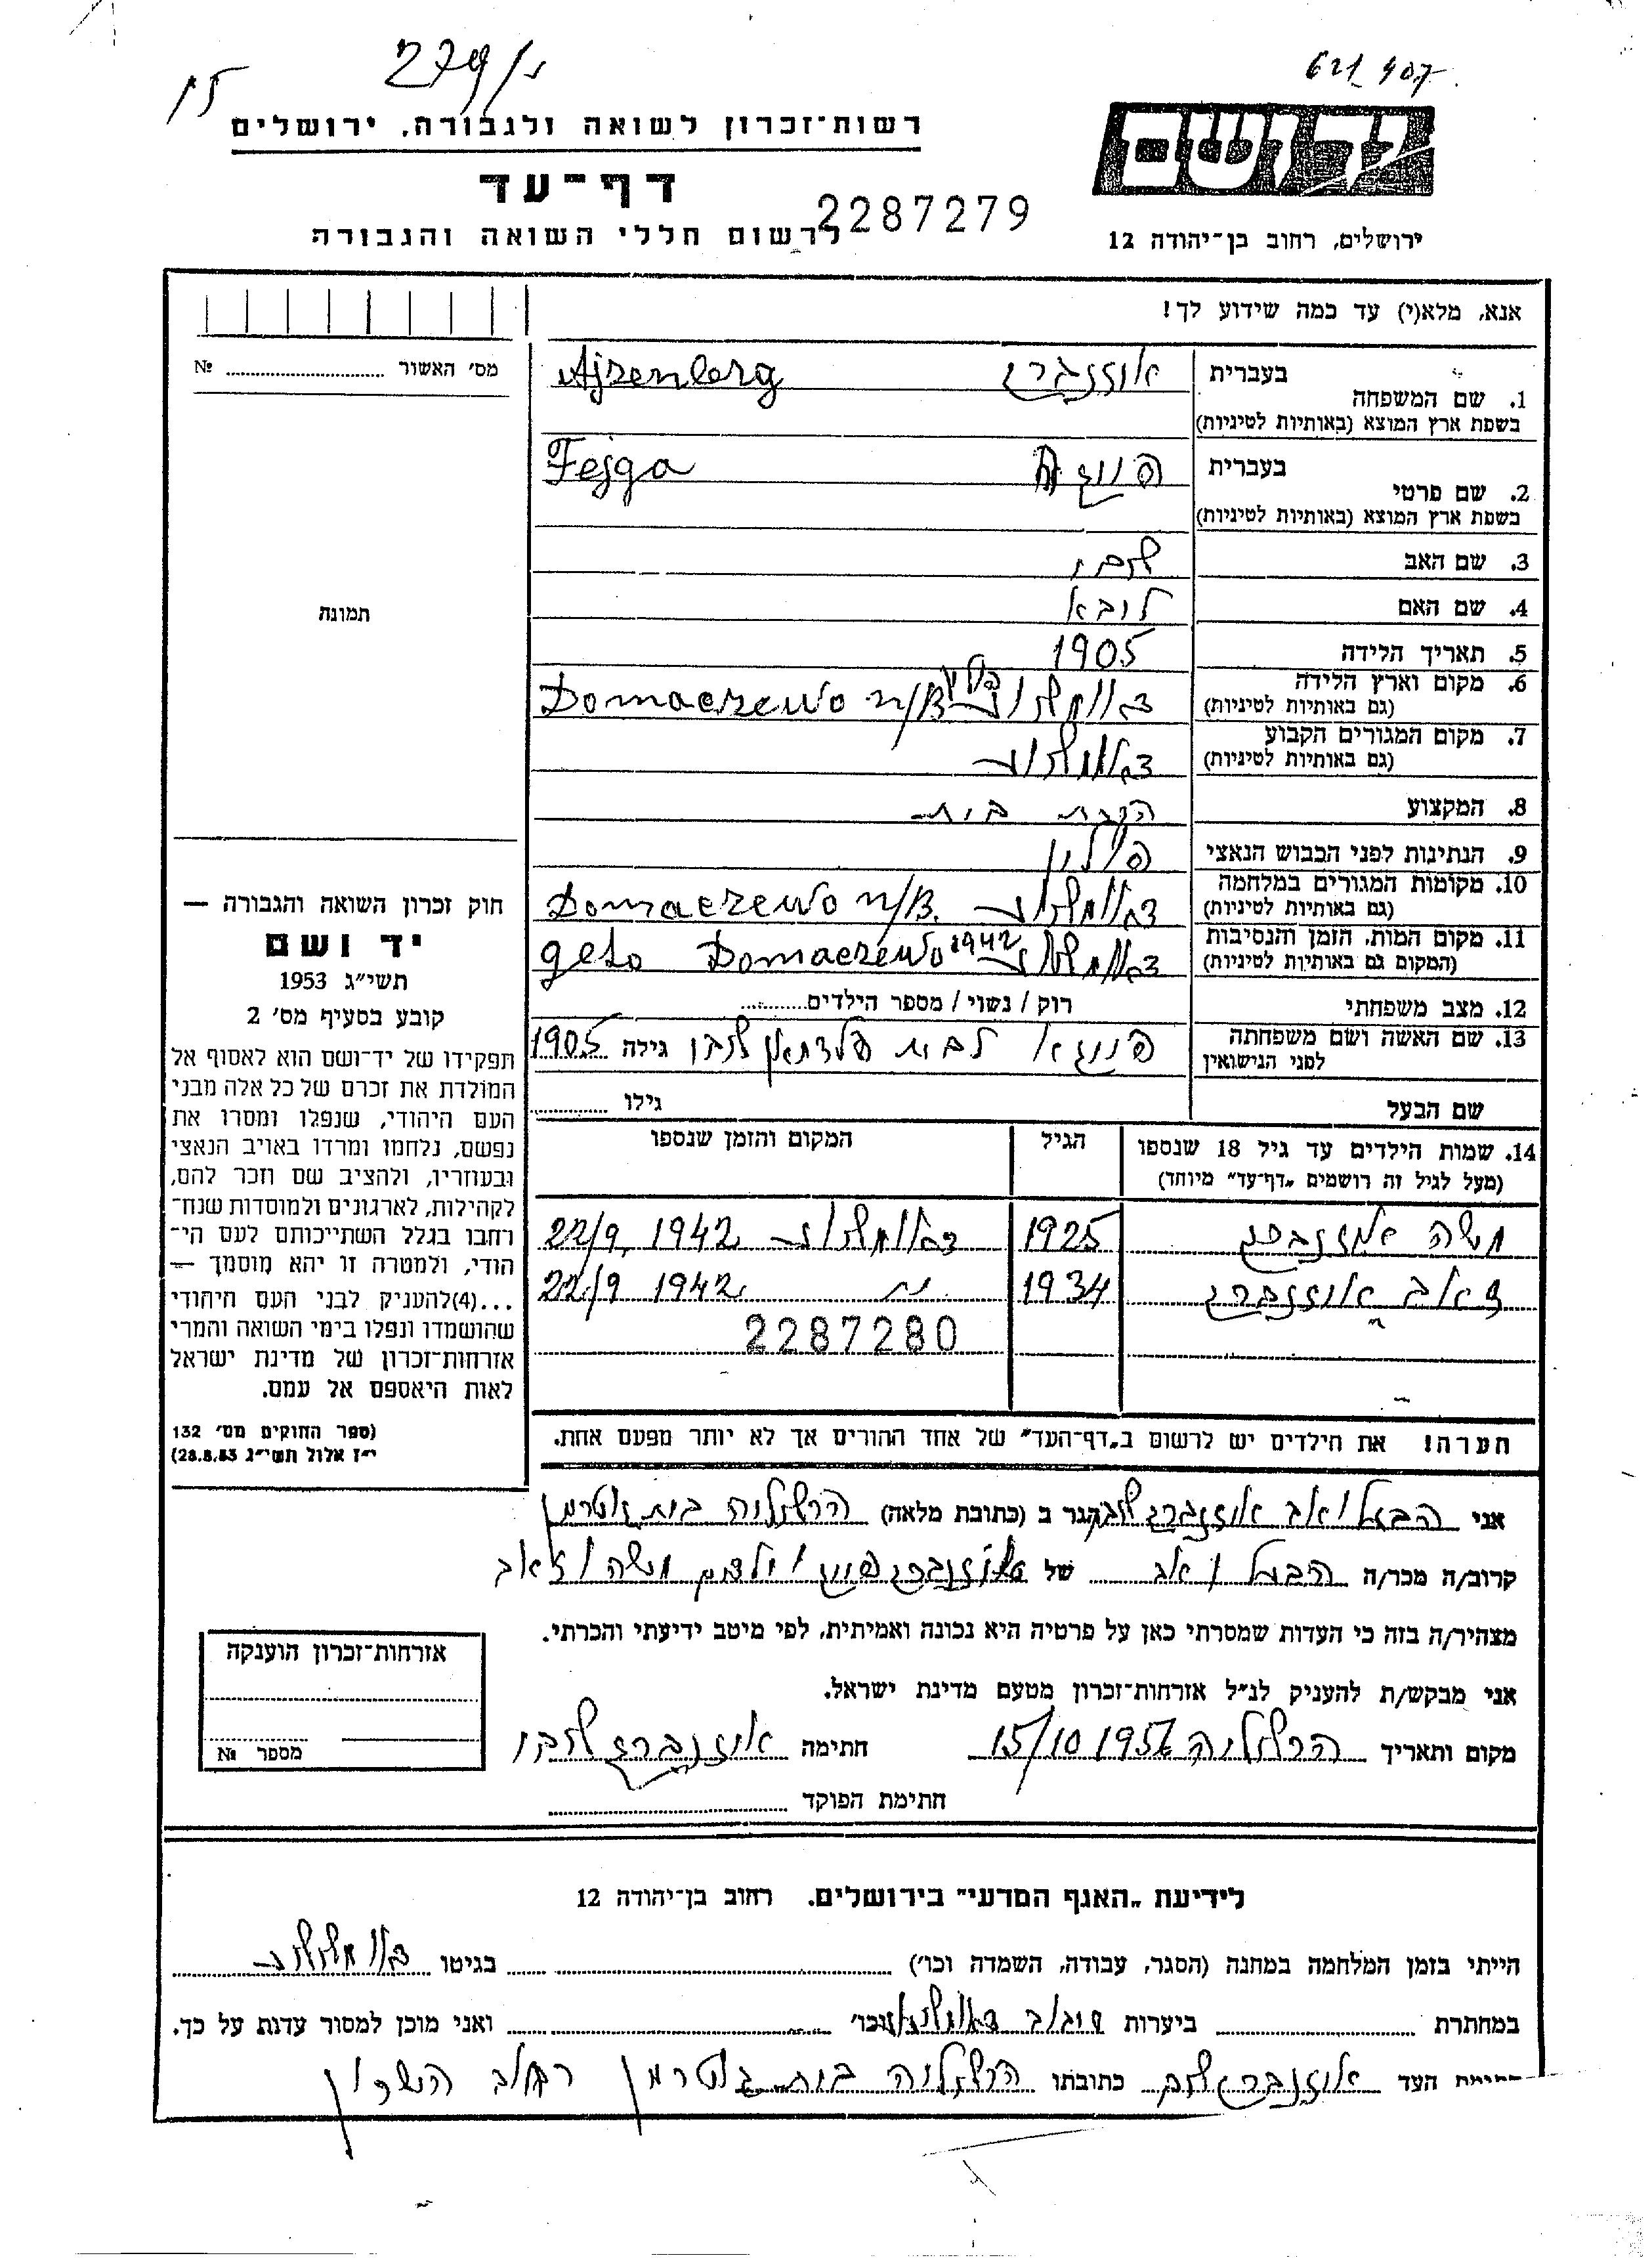 279/י
15
621 407
רשות־זכרון לשואה ולגבורה, ירושלים
דף־עד
2287279
לרשום חללי השואה והגבורה
יד ושם
ירושלים, רחוב בן־יהודה 12
אנא, מלא(י) עד כמה שידוע לך!
מס׳ האשור № 
1. שם המשפחה
בעברית אייזנברג Ajzenberg
בשפת ארץ המוצא (באותיות לטיניות)
2. שם פרטי
בעברית פייגא Fejga
בשפת ארץ המוצא (באותיות לטיניות)
3. שם האב
4. שם האם לובא
5. תאריך הלידה 1905
6. מקום וארץ הלידה
(גם באותיות לטיניות) Domaczewo n/B פולין
7. מקום המגורים הקבוע
(גם באותיות לטיניות)
8. המקצוע עקרת בית
9. הנתינות לפני הכבוש הנאצי פולין
10. מקומות המגורים במלחמה
(גם באותיות לטיניות) Domaczewo n/B.
11. מקום המות, הזמן והנסיבות
(המקום גם באותיות לטיניות) 1942 geto Domaczewo
12. מצב משפחתי רוק / נשוי / מספר הילדים
13. שם האשה ושם משפחתה
לפני הנישואין פייגא לבית גילה 1905
שם הבעל גילו
תמונה
חוק זכרון השואה והגבורה —
יד ושם
תשי״ג 1953
קובע בסעיף מס׳ 2
תפקידו של יד־ושם הוא לאסוף אל
המולדת את זכרם של כל אלה מבני
העם היהודי, שנפלו ומסרו את
נפשם, נלחמו ומרדו באויב הנאצי
ובעוזריו, ולהציב שם וזכר להם,
לקהילות, לארגונים ולמוסדות שנח־
רחבו בגלל השתייכותם לעם הי־
הודי, ולמטרה זו יהא מוסמך —
...(4)להעניק לבני העם היהודי
שהושמדו ונפלו בימי השואה והמרי
אזרחות־זכרון של מדינת ישראל
לאות היאספם אל עמם.
(ספר החוקים מס׳ 132
י״ז אלול תשי״ג 28.8.53)
14. שמות הילדים עד גיל 18 שנספו
(מעל לגיל זה רושמים „דף־עד״ מיוחד)
הגיל
המקום והזמן שנספו
משה אייזנברג 1925 22/9 1942
זאב אייזנברג 1934 22/9 1942
2287280
הערה! את הילדים יש לרשום ב„דף־העד״ של אחד ההורים אך לא יותר מפעם אחת.
אני הבעל ואב אייזנברג הגר ב (כתובת מלאה) הרצליה בית
קרוב/ה מכר/ה הבעל ואב של אייזנברג פייגא וילדים משה וזאב
מצהיר/ה בזה כי העדות שמסרתי כאן על פרטיה היא נכונה ואמיתית, לפי מיטב ידיעתי והכרתי.
אני מבקש/ת להעניק לנ״ל אזרחות־זכרון מטעם מדינת ישראל.
מקום ותאריך הרצליה 15/10 1956 חתימה אייזנברג
חתימת הפוקד
אזרחות־זכרון הוענקה
מספר №
לידיעת „האגף המדעי״ בירושלים. רחוב בן־יהודה 12
הייתי בזמן המלחמה במחנה (הסגר, עבודה, השמדה וכו׳) בגיטו
במחתרת ביערות וכו׳ ואני מוכן למסור עדות על כך.
חתימת העד אייזנברג כתובתו הרצליה בית רחוב השרון